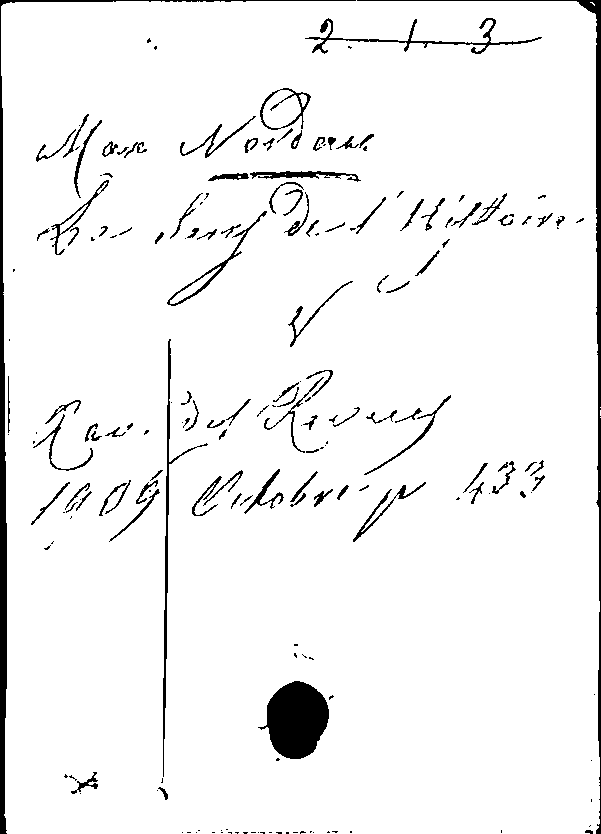 2. 1. 3
Max Nordau
Le Sens de l'Histoire
V
Rev. des Revues
1909 Octobre p 433